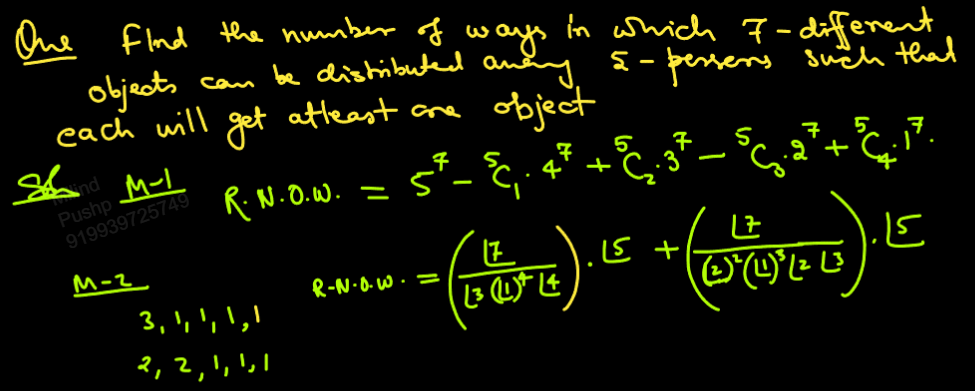 Que Find the number of ways in which 7-different
objects can be distributed among 5-persons such that
each will get atleast one object
Sol M-1 R.N.O.W. = 5⁷ - ⁵C₁·4⁷ + ⁵C₂·3⁷ - ⁵C₃·2⁷ + ⁵C₄·1⁷.
Pushp
919939725749
M-2 R-N.O.W. = (⌊7 / ⌊3 (⌊1)⁴ ⌊4)·⌊5 + (⌊7 / (⌊2)² (⌊1)³ ⌊2 ⌊3)·⌊5
3, 1, 1, 1, 1
2, 2, 1, 1, 1